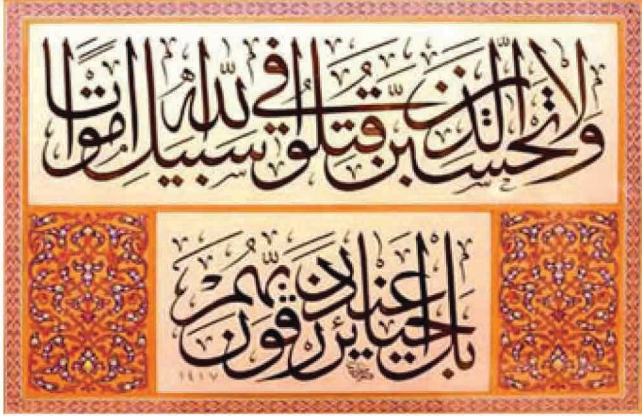 ولا تحسبن الذين قتلوا في سبيل الله أمواتا
بل أحياء عند ربهم يرزقون
١٤١٧